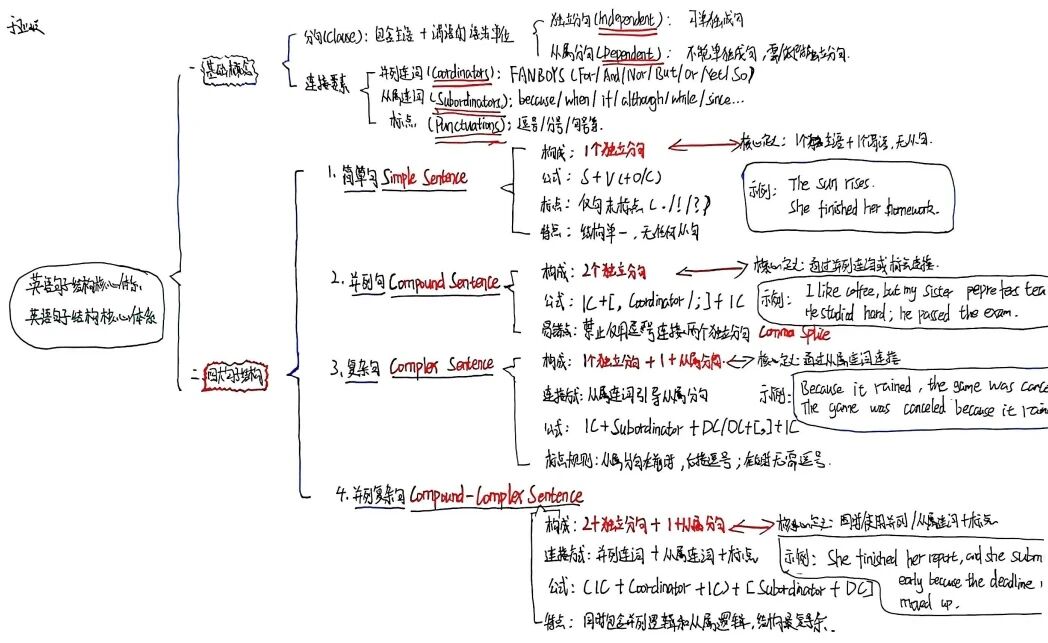 分句(Clause): 包含主语 + 谓语的语法单位
独立分句(Independent): 可单独成句
从属分句(Dependent): 不能单独成句,需依附独立分句.
一 基础概念
连接要素
并列连词(Coordinators): FANBOYS (For/And/Nor/But/Or/Yet/So)
从属连词(Subordinators): because/when/if/although/while/since...
标点 (Punctuations): 逗号/分号/句号等.
英语句子结构核心体系
英语句子结构核心体系
二 四大句子结构
1. 简单句 Simple Sentence
构成: 1个独立分句
核心定义: 1个独立主语+1个谓语,无从句.
公式: S+V(+O/C)
标点: 仅句末标点 (./!/?)
特点: 结构单一,无任何从句
示例: The sun rises.
She finished her homework.
2. 并列句 Compound Sentence
构成: 2个独立分句
核心定义: 通过并列连词或标点连接.
公式: IC+[, Coordinator/;]+IC
易错点: 禁止仅用逗号连接两个独立分句 Comma Splice
示例: I like coffee, but my sister peprefers tea
He studid hard; he passed the exam.
3. 复杂句 Complex Sentence
构成: 1个独立分句 + 1+从属分句.
核心定义: 通过从属连词连接
连接方式: 从属连词引导从属分句
公式: IC+Subordinator+DC/DC+[,]+IC
标点规则: 从属分句在前时,后接逗号;在后时无需逗号.
示例: Because it rained, the game was cance
The game was canceled because it rain
4. 并列复杂句 Compound-Complex Sentence
构成: 2+独立分句 + 1+从属分句
核心定义: 同时使用并列/从属连词+标点
连接方式: 并列连词 + 从属连词 + 标点
公式: (IC + Coordinator + IC) + [Subordinator + DC]
特点: 同时包含并列逻辑和从属逻辑,结构最复杂.
示例: She finished her report, and she subm
early because the deadline
moved up.